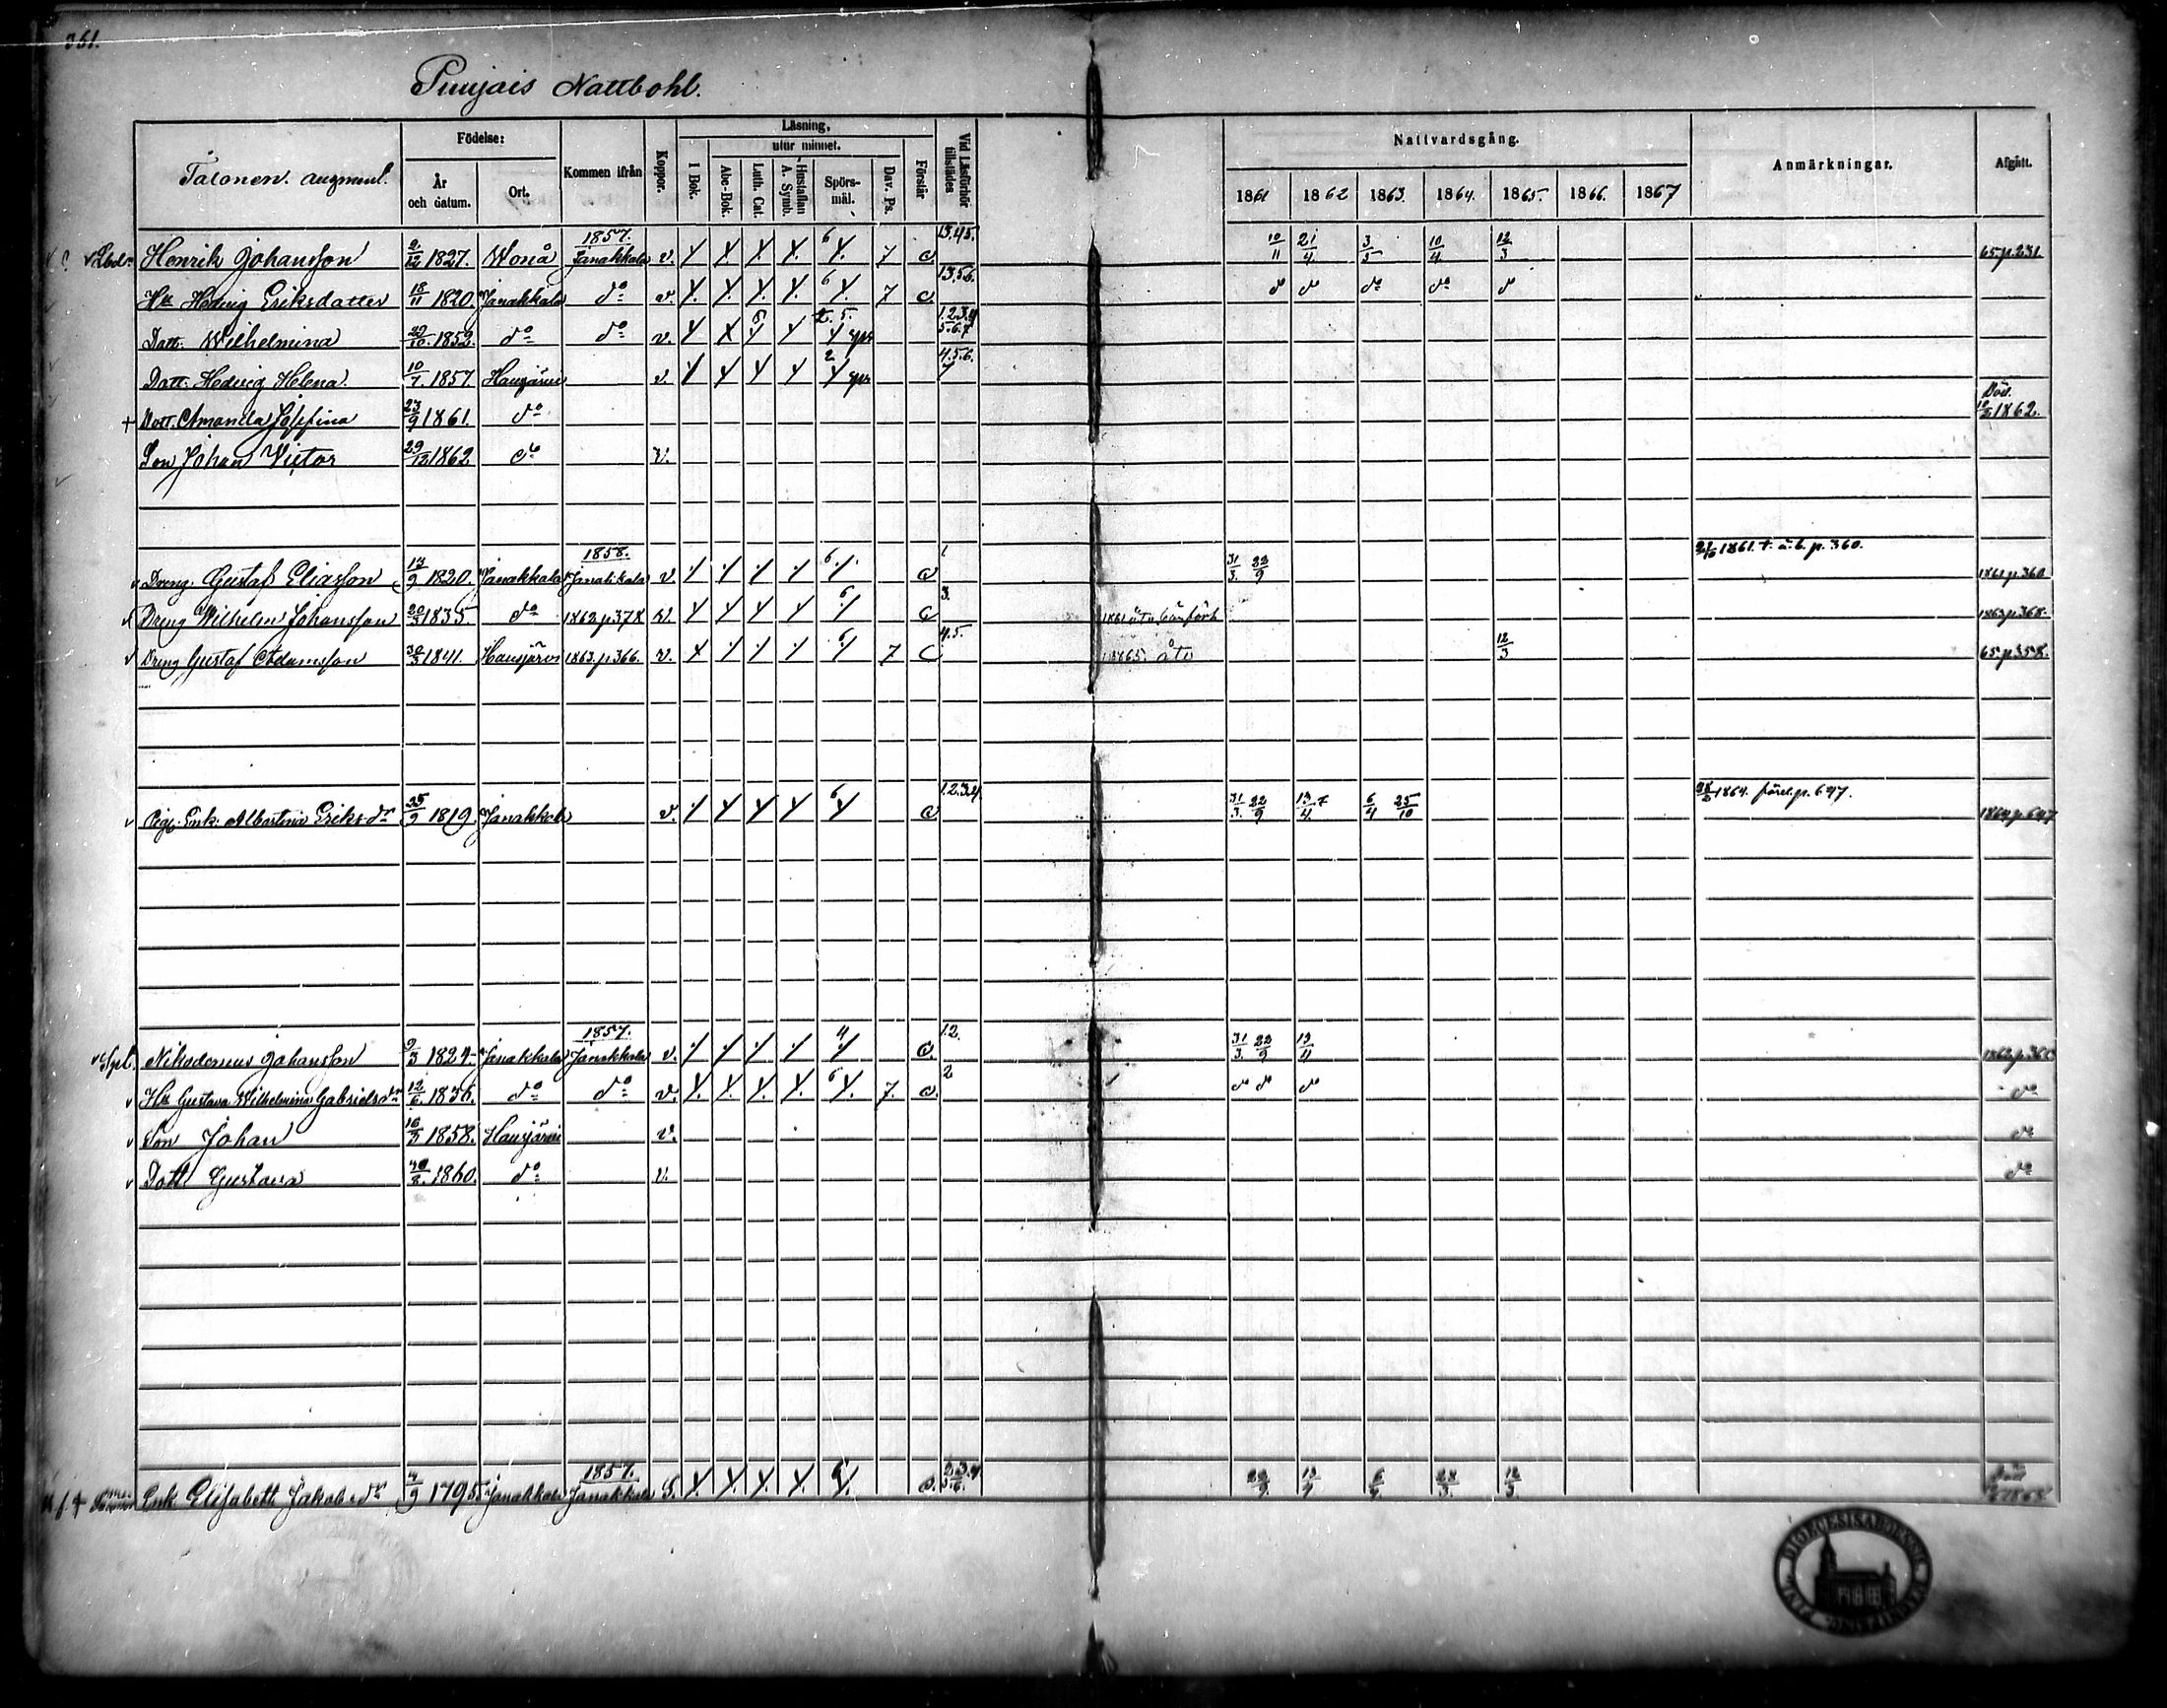 361.
Puujais Nattbohl.
Talonen. augment.
Födelse:
År och datum.
Ort.
Kommen ifrån
Koppor.
Läsning,
utur minnet.
I Bok.
Abc-Bok.
Luth. Cat.
Hustaflan A. Symb.
Spörs-mål.
Dav. Ps.
Förstår
Vid Läsförhör tillstädes
Nattvardsgång.
1861 1862 1863. 1864. 1865. 1866. 1867
Anmärkningar.
Afgått.
Henrik Johansson 9/12 1827. Wonå 1857. Janakkala v. 6 7 c. 1.3.4.5. 10/11 21/4. 3/5 10/4. 12/3 65.p.231.
Hu Hedvig Eriksdatter 18/11 1820. Janakkala do v. 6 7 c. 1.3.5.6. do do do do do
Dott. Wilhelmina 29/10. 1852. do do v. 1.2.3.4 5.6.7
Dott. Hedvig Helena. 10/7. 1857. Hausjärvi v. 2 4.5.6. 7
+ Dott. Amanda Josefina 23/9 1861. do Död. 1862.
Son Johan Victor 29/12 1862 do v.
Dreng. Gustaf Eliasson 1820. Janakkala 1858. Janakkala v. 6 c 1 31/3. 22/9 1861. p. 360. 1861.p.360
Dreng Wilhelm Johansson 1835 do 1862.p.378 v. 6 c 3. 1863.p.368.
Dreng Gustaf Adamsson 30/3 1841. Hausjärvi 1863.p.366. v. 6 7 c 4.5. 1865. 12/3 65.p.358.
Pig. Enk. Albertina Eriksdr 25/9 1819 Janakkala v. 6 c 1.2.3.4. 31/3. 22/9 13/4. 6/4 25/10 1864. p. 647. 1864.p.647
Nikodemus Johansson 9/3 1824. Janakkala 1857. Janakkala v. 4 c. 1.2. 31/3. 22/9 13/4
Hu Gustava Wilhelmina Gabrielsdr 1836. do do v. 6 7. c. 2 do do do do
Son Johan 16/3 1858. Hausjärvi v. do
Dott Gustava 1860. do v. do
Enk. Elisabeth Jakobsdr 4/9 1795 Janakkala 1857. Janakkala S. c. 2.3.4 5.6. 22/9 13/4 6/4. 12/3.